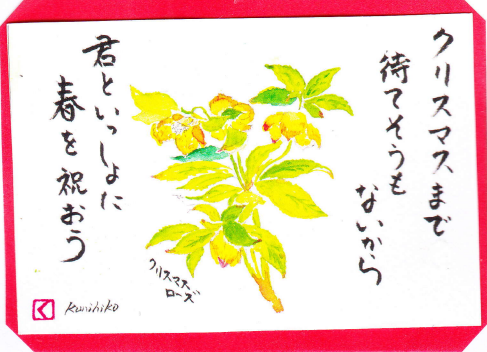 クリスマスまで
待てそうも
ないから
君といっしょに
春を祝おう
クリスマス
ローズ
く
Kunihiko